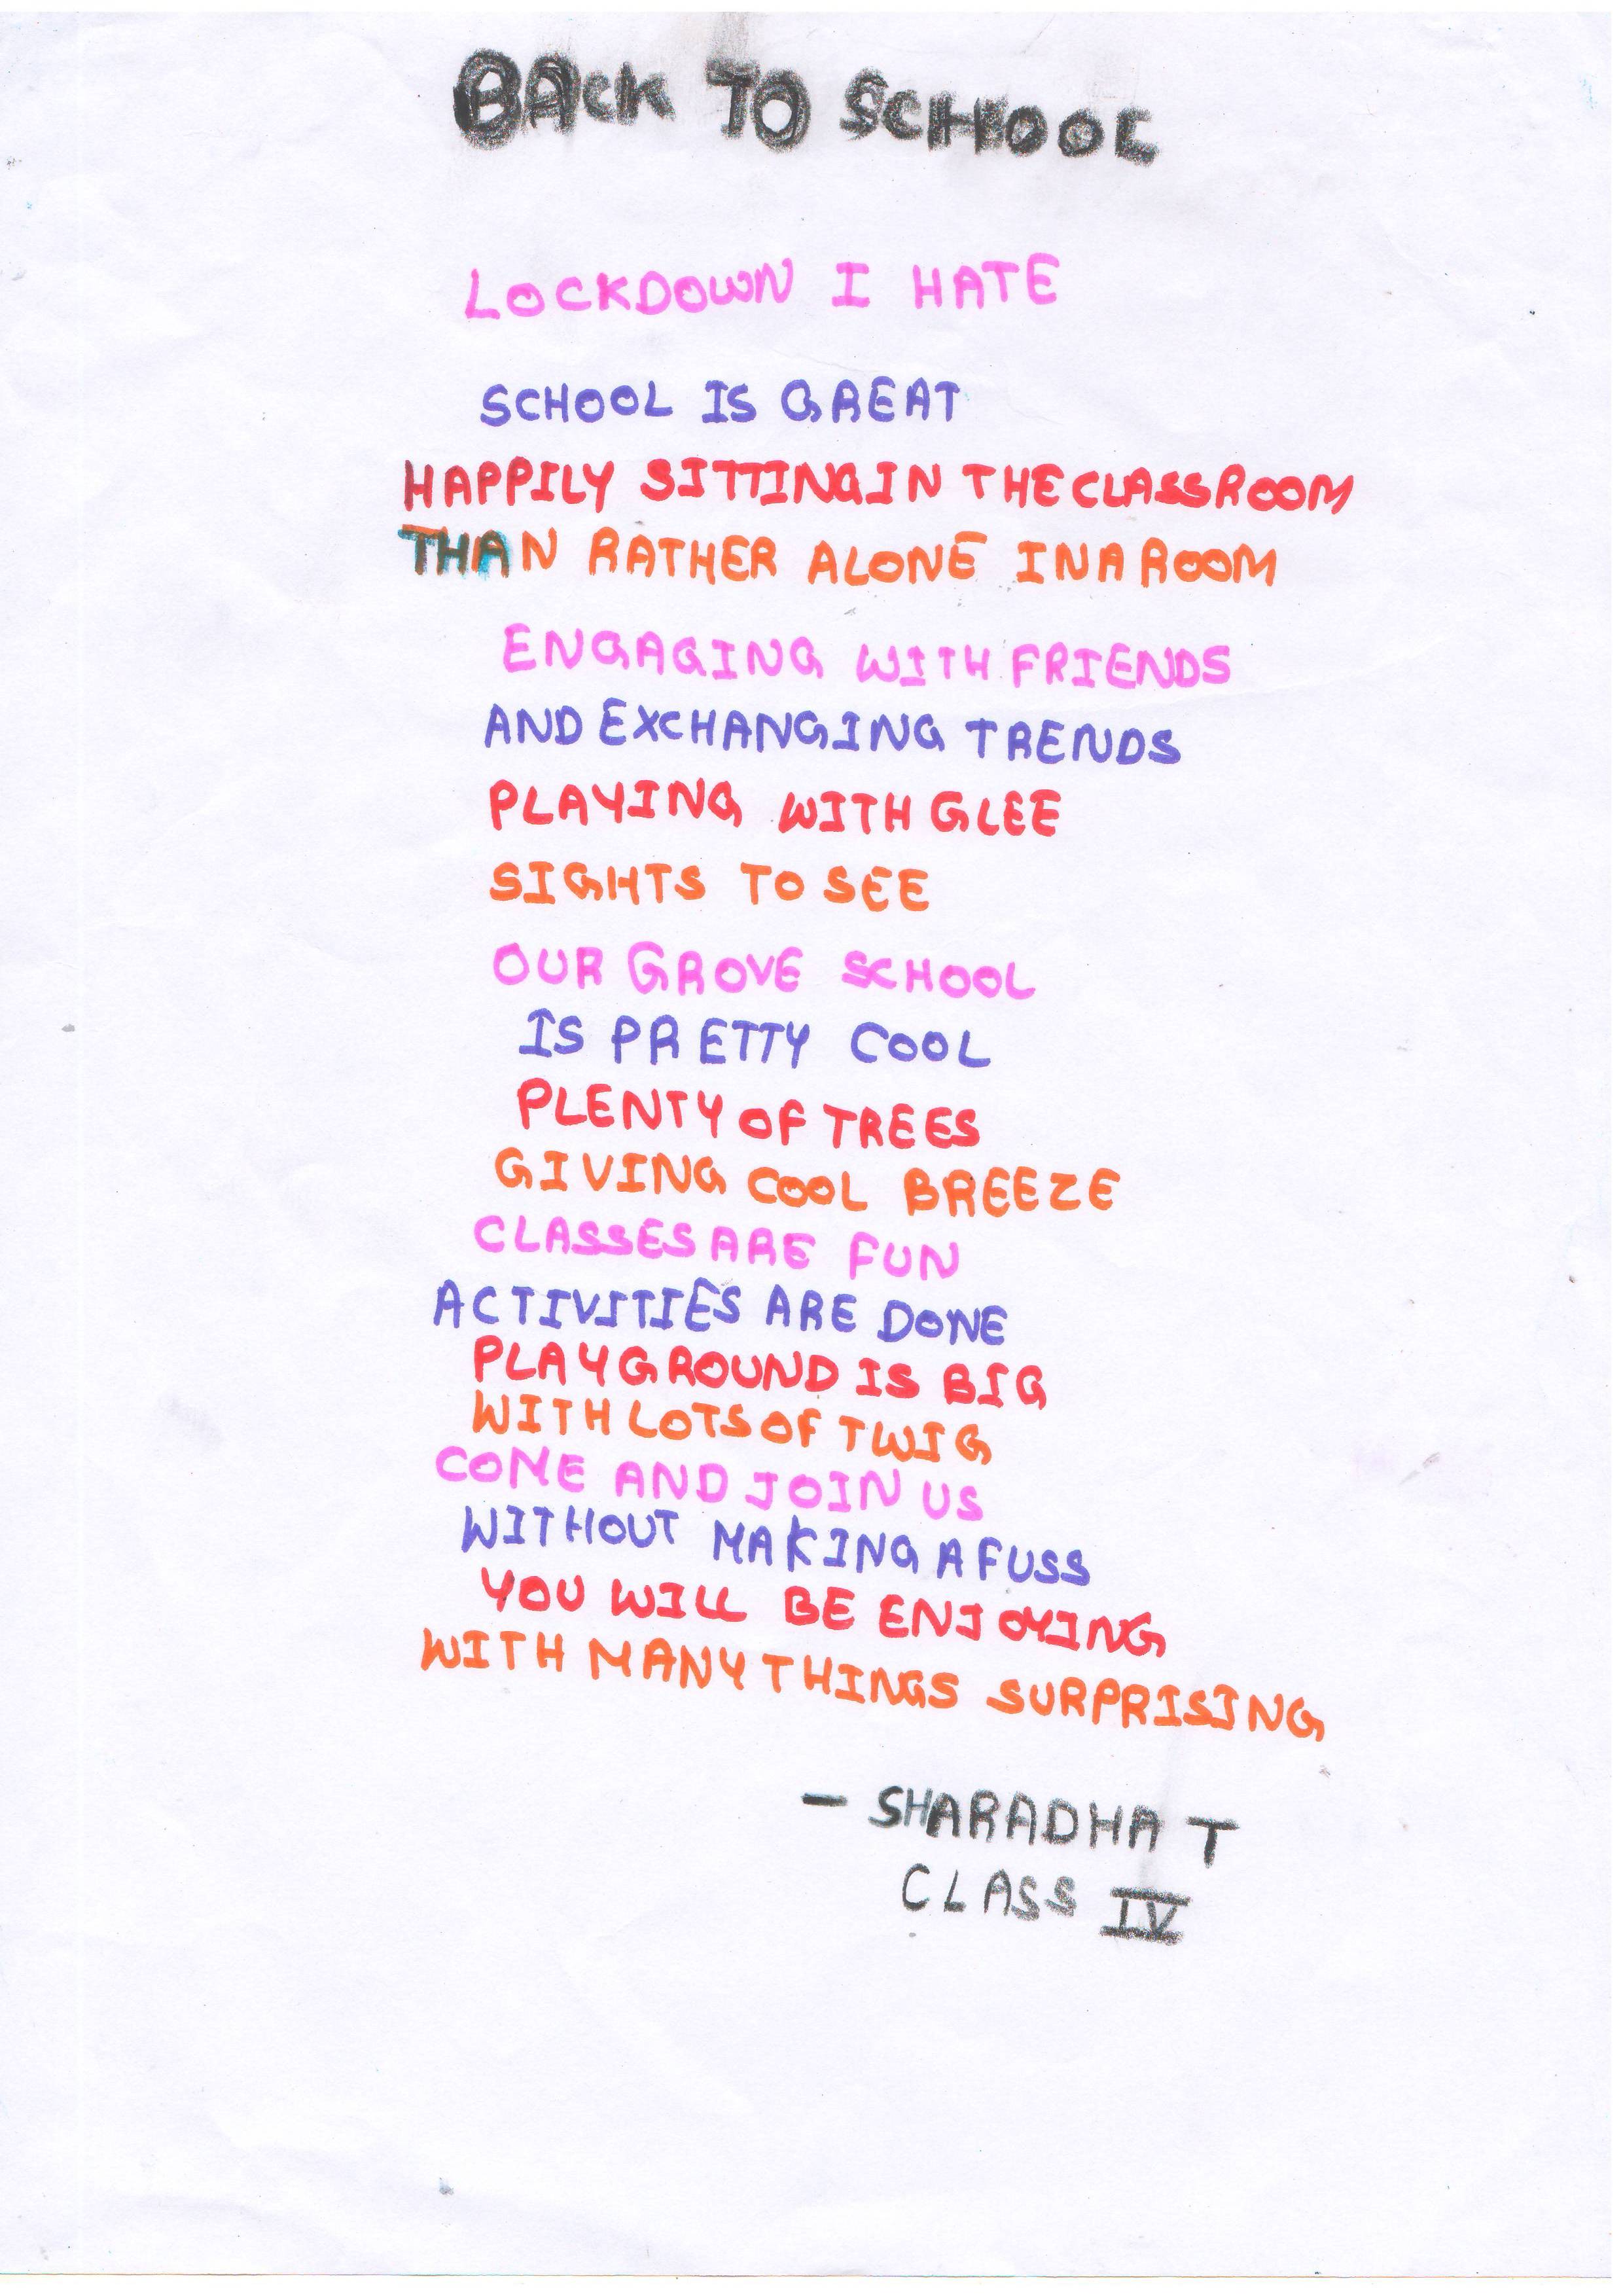 BACK TO SCHOOL
LOCKDOWN I HATE
SCHOOL IS GREAT
HAPPILY SITTING IN THE CLASSROOM
THAN RATHER ALONE IN A ROOM
ENGAGING WITH FRIENDS
AND EXCHANGING TRENDS
PLAYING WITH GLEE
SIGHTS TO SEE
OUR GROVE SCHOOL
IS PRETTY COOL
PLENTY OF TREES
GIVING COOL BREEZE
CLASSES ARE FUN
ACTIVITIES ARE DONE
PLAYGROUND IS BIG
WITH LOTS OF TWIG
COME AND JOIN US
WITHOUT MAKING A FUSS
YOU WILL BE ENJOYING
WITH MANY THINGS SURPRISING
- SHARADHA T
CLASS IV